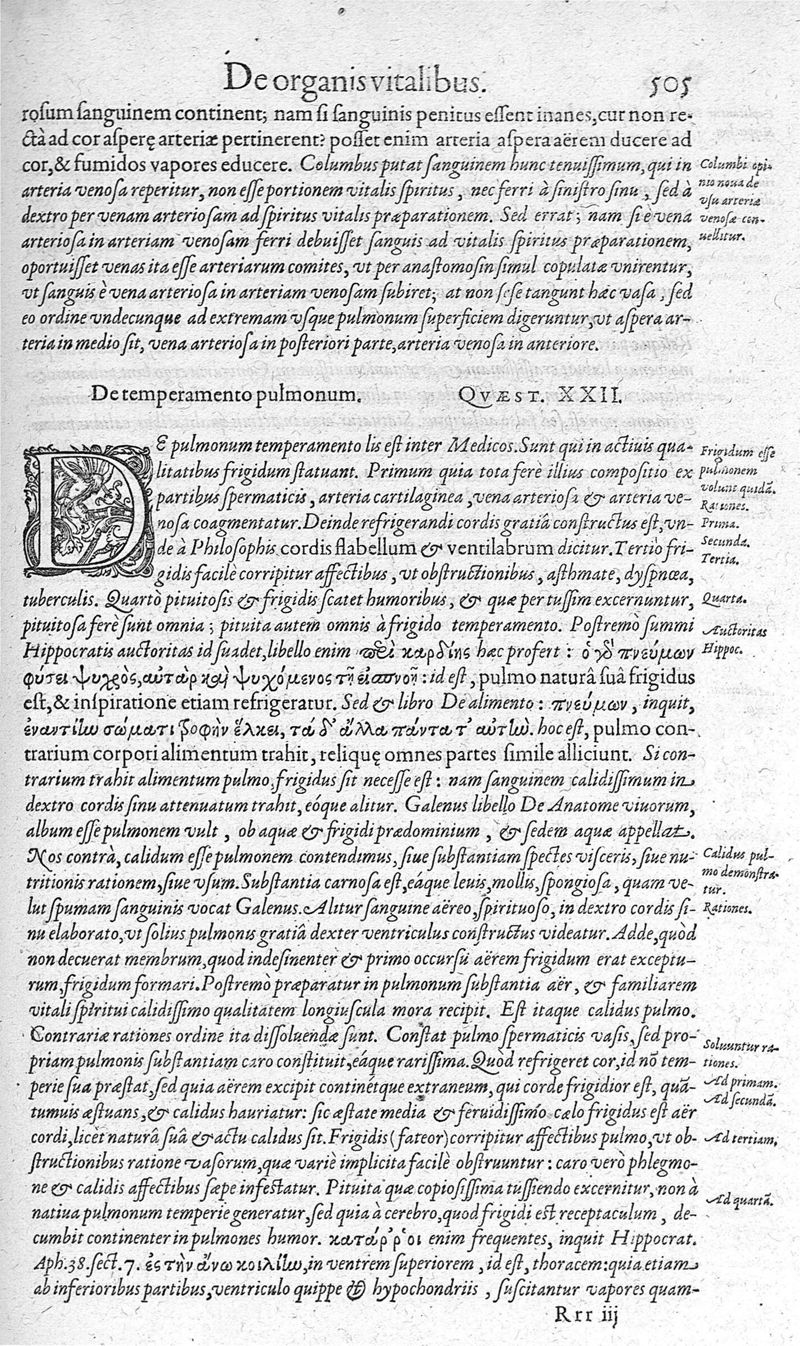 De organis vitalibus. 505
rosum sanguinem continent; nam si sanguinis penitus essent inanes, cur non re-
ctà ad cor asperę arteriæ pertinerent? posset enim arteria aspera aërem ducere ad
cor, & fumidos vapores educere. Columbus putat sanguinem hunc tenuissimum, qui in
arteria venosa reperitur, non esse portionem vitalis spiritus, nec ferri à sinistro sinu, sed à
dextro per venam arteriosam ad spiritus vitalis præparationem. Sed errat; nam si è vena
arteriosa in arteriam venosam ferri debuisset sanguis ad vitalis spiritus præparationem,
oportuisset venas ita esse arteriarum comites, vt per anastomosin simul copulatæ vnirentur,
vt sanguis è vena arteriosa in arteriam venosam subiret; at non sese tangunt hæc vasa, sed
eo ordine vndecunque ad extremam vsque pulmonum superficiem digeruntur, vt aspera ar-
teria in medio sit, vena arteriosa in posteriori parte, arteria venosa in anteriore.
Columbi opi-
nio noua de
vsu arteriæ
venosæ con-
uellitur.
De temperamento pulmonum. QVÆST. XXII.
DE pulmonum temperamento lis est inter Medicos. Sunt qui in actiuis qua-
litatibus frigidum statuant. Primum quia tota ferè illius compositio ex
partibus spermaticis, arteria cartilaginea, vena arteriosa & arteria ve-
nosa coagmentatur. Deinde refrigerandi cordis gratiâ constructus est, vn-
de à Philosophis cordis flabellum & ventilabrum dicitur. Tertio fri-
gidis facilè corripitur affectibus, vt obstructionibus, asthmate, dyspnœa,
tuberculis. Quartò pituitosis & frigidis scatet humoribus, & quæ per tussim excernuntur,
pituitosa ferè sunt omnia; pituita autem omnis à frigido temperamento. Postremò summi
Hippocratis auctoritas id suadet, libello enim περὶ καρδίης hæc profert: ὁ γὰρ πνεύμων
φύσει ψυχρὸς, αὐτὰρ καὶ ψυχόμενος τῇ εἰσπνοῇ: id est, pulmo naturâ suâ frigidus
est, & inspiratione etiam refrigeratur. Sed & libro De alimento: πνεύμων, inquit,
ἐναντίην σώματι τροφὴν ἕλκει, τὰ δ' ἄλλα πάντα τ' αὐτήν. hoc est, pulmo con-
trarium corpori alimentum trahit, reliquę omnes partes simile alliciunt. Si con-
trarium trahit alimentum pulmo, frigidus sit necesse est: nam sanguinem calidissimum in
dextro cordis sinu attenuatum trahit, eóque alitur. Galenus libello De Anatome viuorum,
album esse pulmonem vult, ob aquæ & frigidi prædominium, & sedem aquæ appellat.
Nos contrà, calidum esse pulmonem contendimus, siue substantiam spectes visceris, siue nu-
tritionis rationem, siue vsum. Substantia carnosa est, eáque leuis, mollis, spongiosa, quam ve-
lut spumam sanguinis vocat Galenus. Alitur sanguine aëreo, spirituoso, in dextro cordis si-
nu elaborato, vt solius pulmonis gratiâ dexter ventriculus constructus videatur. Adde, quòd
non decuerat membrum, quod indesinenter & primo occursũ aërem frigidum erat exceptu-
rum, frigidum formari. Postremò præparatur in pulmonum substantia aër, & familiarem
vitali spiritui calidissimo qualitatem longiuscula mora recipit. Est itaque calidus pulmo.
Contrariæ rationes ordine ita dissoluendæ sunt. Constat pulmo spermaticis vasis, sed pro-
priam pulmonis substantiam caro constituit, eáque rarissima. Quòd refrigeret cor, id nõ tem-
perie sua præstat, sed quia aërem excipit continétque extraneum, qui corde frigidior est, quã-
tumuis æstuans, & calidus hauriatur: sic æstate media & feruidissimo cælo frigidus est aër
cordi, licet naturâ suâ & actu calidus sit. Frigidis (fateor) corripitur affectibus pulmo, vt ob-
structionibus ratione vasorum, quæ variè implicita facilè obstruuntur: caro verò phlegmo-
ne & calidis affectibus sæpe infestatur. Pituita quæ copiosissima tussiendo excernitur, non à
natiua pulmonum temperie generatur, sed quia à cerebro, quod frigidi est receptaculum, de-
cumbit continenter in pulmones humor. κατάῤῥοι enim frequentes, inquit Hippocrat.
Aph. 38. sect. 7. ἐς τὴν ἄνω κοιλίην, in ventrem superiorem, id est, thoracem: quia etiam
ab inferioribus partibus, ventriculo quippe & hypochondriis, suscitantur vapores quam-
Frigidum esse
pulmonem
volunt quidã.
Rationes.
Prima.
Secunda.
Tertia.
Quarta.
Auctoritas
Hippoc.
Calidus pul-
mo demonstra-
tur.
Rationes.
Soluuntur ra-
tiones.
Ad primam.
Ad secundã.
Ad tertiam.
Ad quartã.
Rrr iij